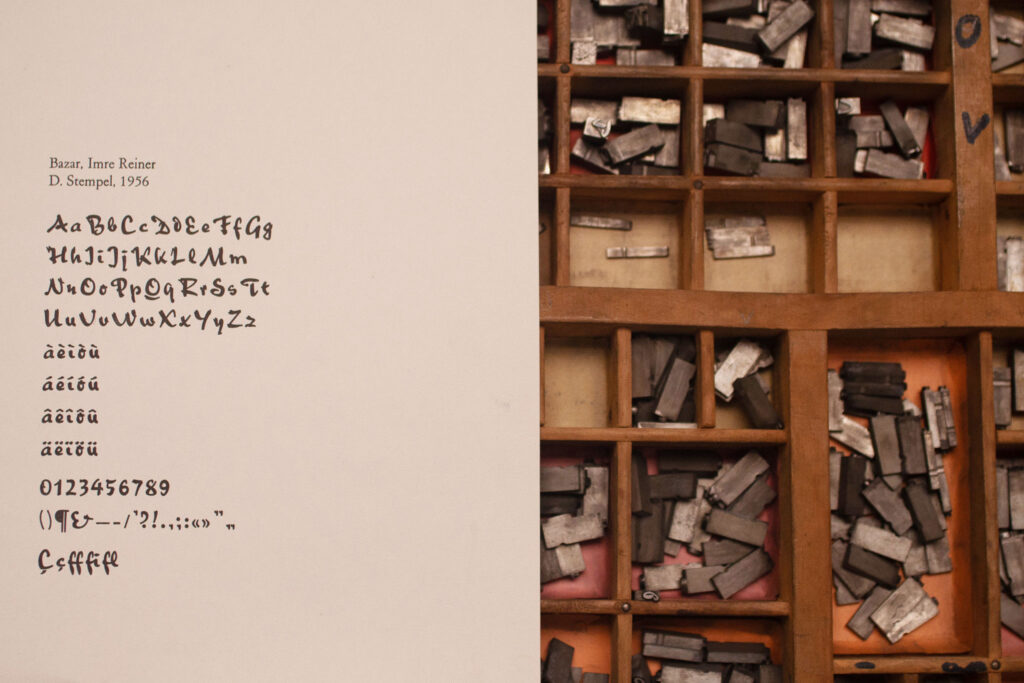 Bazar, Imre Reiner
D. Stempel, 1956
AaBbCcDdEeFfGg
HhIiJjKkLlMm
NnOoPpQqRrSsTt
UuVvWwXxYyZz
àèìòù
áéíóú
âêîôû
äëïöü
0123456789
()¶&—-/'?!.,;:«»”„
Ççfffifl
O
V